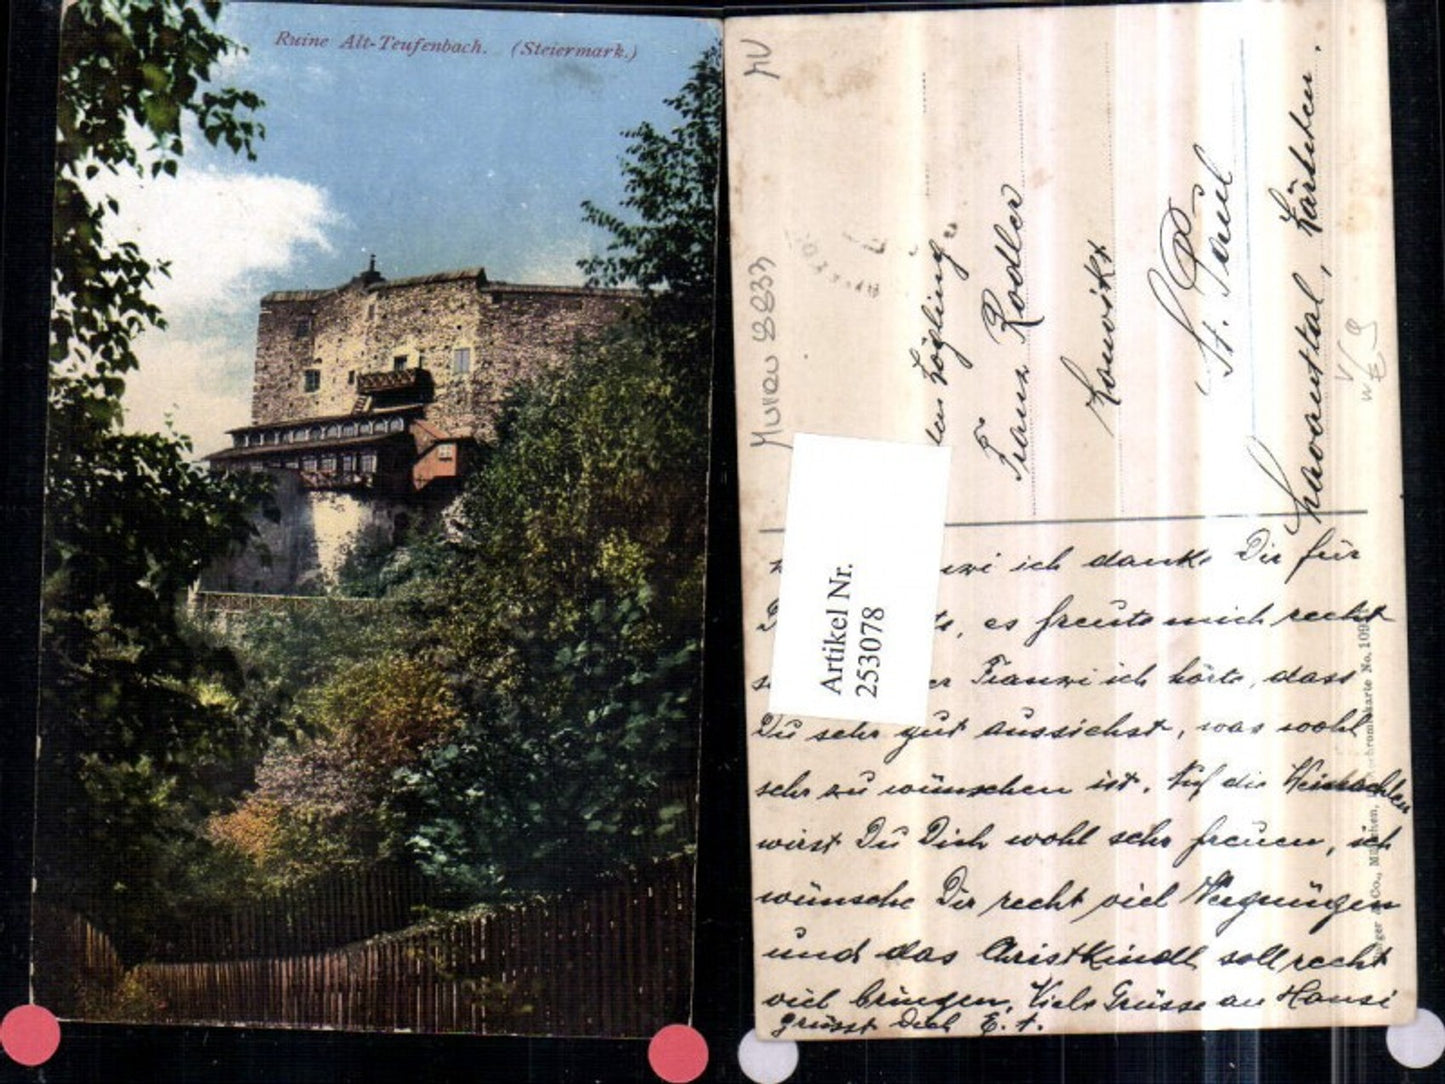 Ruine Alt-Teufenbach. (Steiermark.)
MV
Murau 8833
Zögling
Franz Rodler
Konvikt
St. Paul
Lavanttal, Kärnten.
Artikel Nr.
253078
ich danke Dir für
es freute mich recht
Franzi ich hörte, dass
Du sehr gut aussiehst, was wohl
sehr zu wünschen ist. Auf die Weihnachten
wirst Du Dich wohl sehr freuen, ich
wünsche Dir recht viel Vergnügen
und das Christkindl soll recht
viel bringen. Viele Grüsse an Hansi
grüsst Dich E. t.